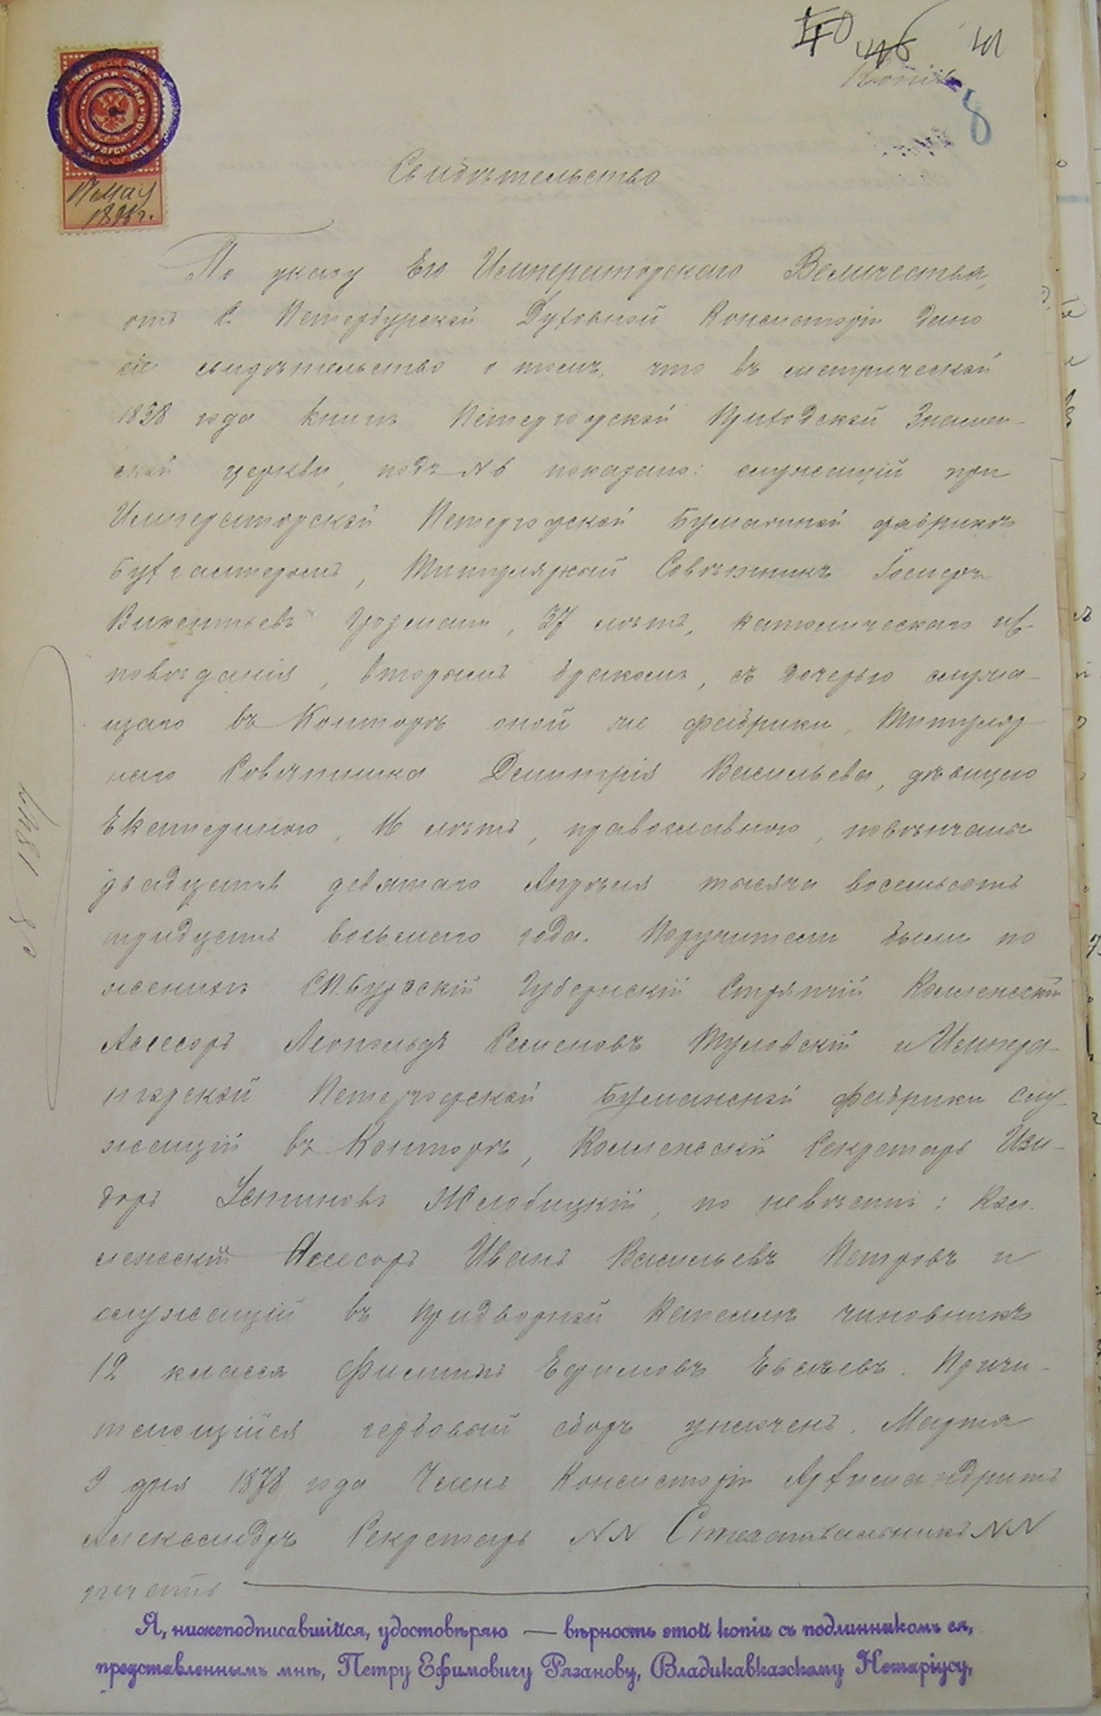 40 446 41
Копія
8
17 мая
189 г.
Свидѣтельство
По указу Его Императорскаго Величества,
отъ С. Петербургской Духовной Консисторіи дано
сіе свидѣтельство о томъ, что въ метрической
1838 года книгѣ Петергофской Приходской Знамен-
ской церкви, подъ № 6 показано: служащій при
Императорской Петергофской Бумажной фабрикѣ
Бухгалтеромъ, Титулярный Совѣтникъ
Викентьевъ, 37 лѣтъ, католическаго ис-
повѣданія, вторымъ бракомъ, съ дочерью служа-
щаго въ Конторѣ оной же фабрики, Титуляр-
наго Совѣтника Димитрія Васильева, дѣвицею
Екатериною, 16 лѣтъ, православною, повѣнчаны
двадцать девятаго Апрѣля тысяча восемьсотъ
тридцать восьмаго года. Поручители были по
женихѣ СП.бургскій Губернскій Стряпчій Коллежскій
Асесоръ Леопольдъ Туловскій и Импера-
торской Петергофской Бумажной фабрики слу-
жащій въ Конторѣ, Коллежскій Секретарь Изи-
доръ Устиновъ Жлобицкій, по невѣстѣ: Кол-
лежскій Асесоръ Иванъ Васильевъ Петровъ и
служащій въ придворной Капеллѣ чиновникъ
12 класса Филиппъ Ефимовъ Евсѣевъ. Причи-
тающійся гербовый сборъ уплаченъ. Марта
9 дня 1878 года Членъ Консисторіи Архимандритъ
Александръ Секретарь NN Столоначальникъ NN
печать
Я, нижеподписавшійся, удостовѣряю — вѣрность этой копіи съ подлинникомъ ея,
представленнымъ мнѣ, Петру Ефимовичу Рязанову, Владикавказскому Нотаріусу,